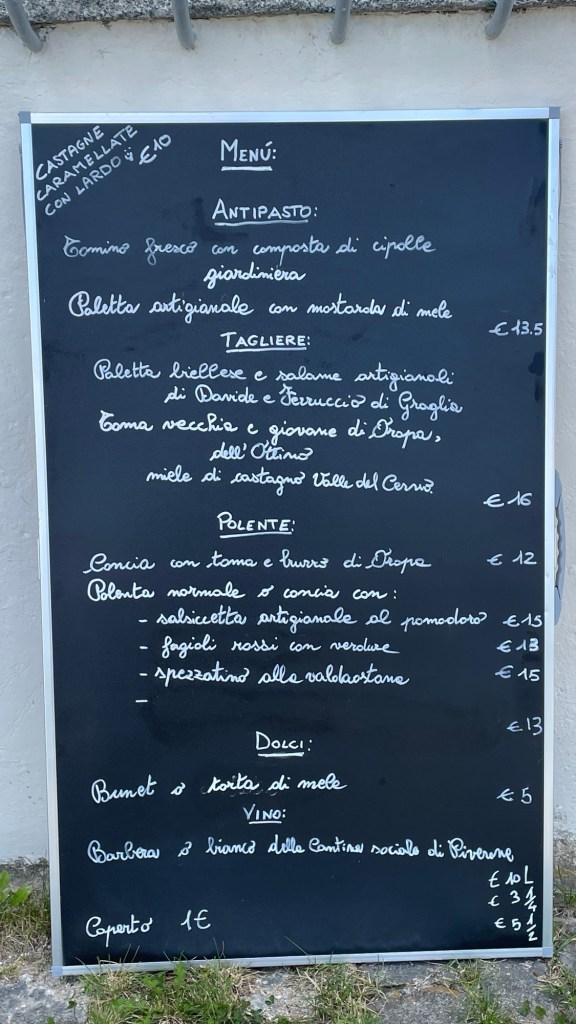 CASTAGNE
CARAMELLATE
CON LARDO €10
MENÚ:
ANTIPASTO:
Tomino fresco con composta di cipolle
giardiniera
Paletta artigianale con mostarda di mele
€ 13.5
TAGLIERE:
Paletta biellese e salame artigianali
di Davide e Ferruccio di Graglia
Toma vecchia e giovane di Oropa,
dell'Ottino
miele di castagno Valle del Cervo.
€ 16
POLENTE:
Concia con toma e burro di Oropa € 12
Polenta normale o concia con:
- salsiccetta artigianale al pomodoro €15
- fagioli rossi con verdure €13
- spezzatino alla valdaostana €15
-
€13
DOLCI:
Bunet o torta di mele € 5
VINO:
Barbera o bianco della Cantina sociale di Piverone
€ 10 L
€ 3 1/4
€ 5 1/2
Coperto 1€